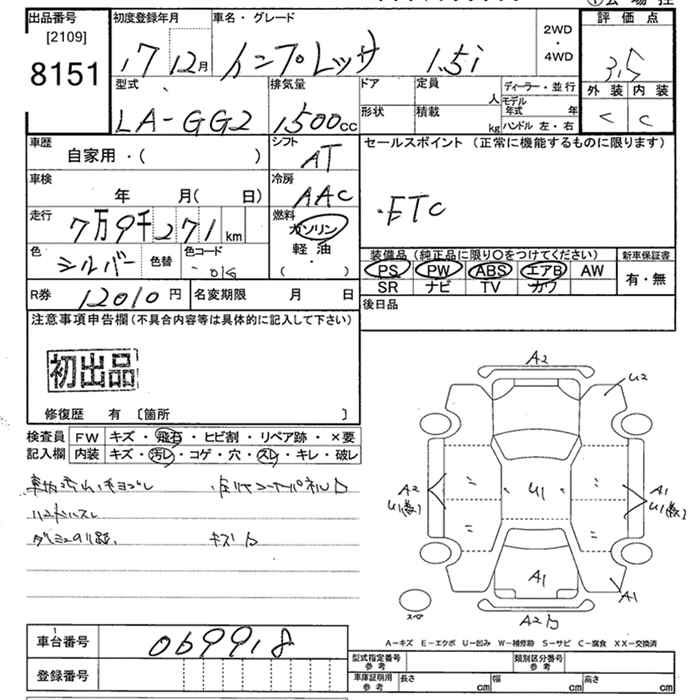 出品番号 [2109] 8151
初度登録年月 17 12月
車名・グレード インプレッサ 1.5i
2WD・4WD
評価点 3.5
外装 内装
C C
型式 LA-GG2
排気量 1500cc
ドア 形状
定員 人
積載 kg
ディーラー・並行
モデル年式 年
ハンドル 左・右
車歴 自家用・( )
シフト AT
セールスポイント(正常に機能するものに限ります)
・ETC
車検 年 月( 日)
冷房 AAC
走行 7万9千271km
燃料 ガソリン 軽油 ( ・ )
色 シルバー 色替 色コード
装備品(純正品に限り○をつけてください)
PS PW ABS エアB AW
SR ナビ TV カワ
新車保証書 有・無
R券 12010円
名変期限 月 日
後日品
注意事項申告欄(不具合内容等は具体的に記入して下さい)
初出品
修復歴 有 [箇所 ]
検査員記入欄
FW キズ・飛石・ヒビ割・リペア跡・×要
内装 キズ・汚レ・コゲ・穴・スレ・キレ・破レ
ハンドルスレ
キズ
A2
U2
A2
U1
A1
A1
A1
A2
スペア
A-キズ E-エクボ U-凹み W-補修跡 S-サビ C-腐食 XX-交換済
車台番号 069918
登録番号
型式指定番号 参考
類別区分番号 参考
車庫証明用 参考 長さ cm 幅 cm 高さ cm